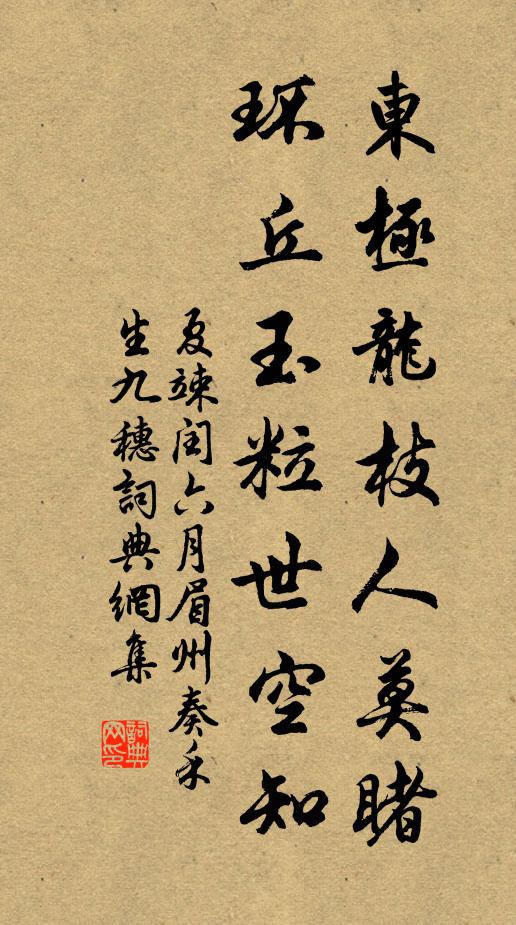 東極龍枝人莫睹
环丘玉粒世空知
夏竦閏六月眉州奏禾
生九穗詞典網集
詞典
网印